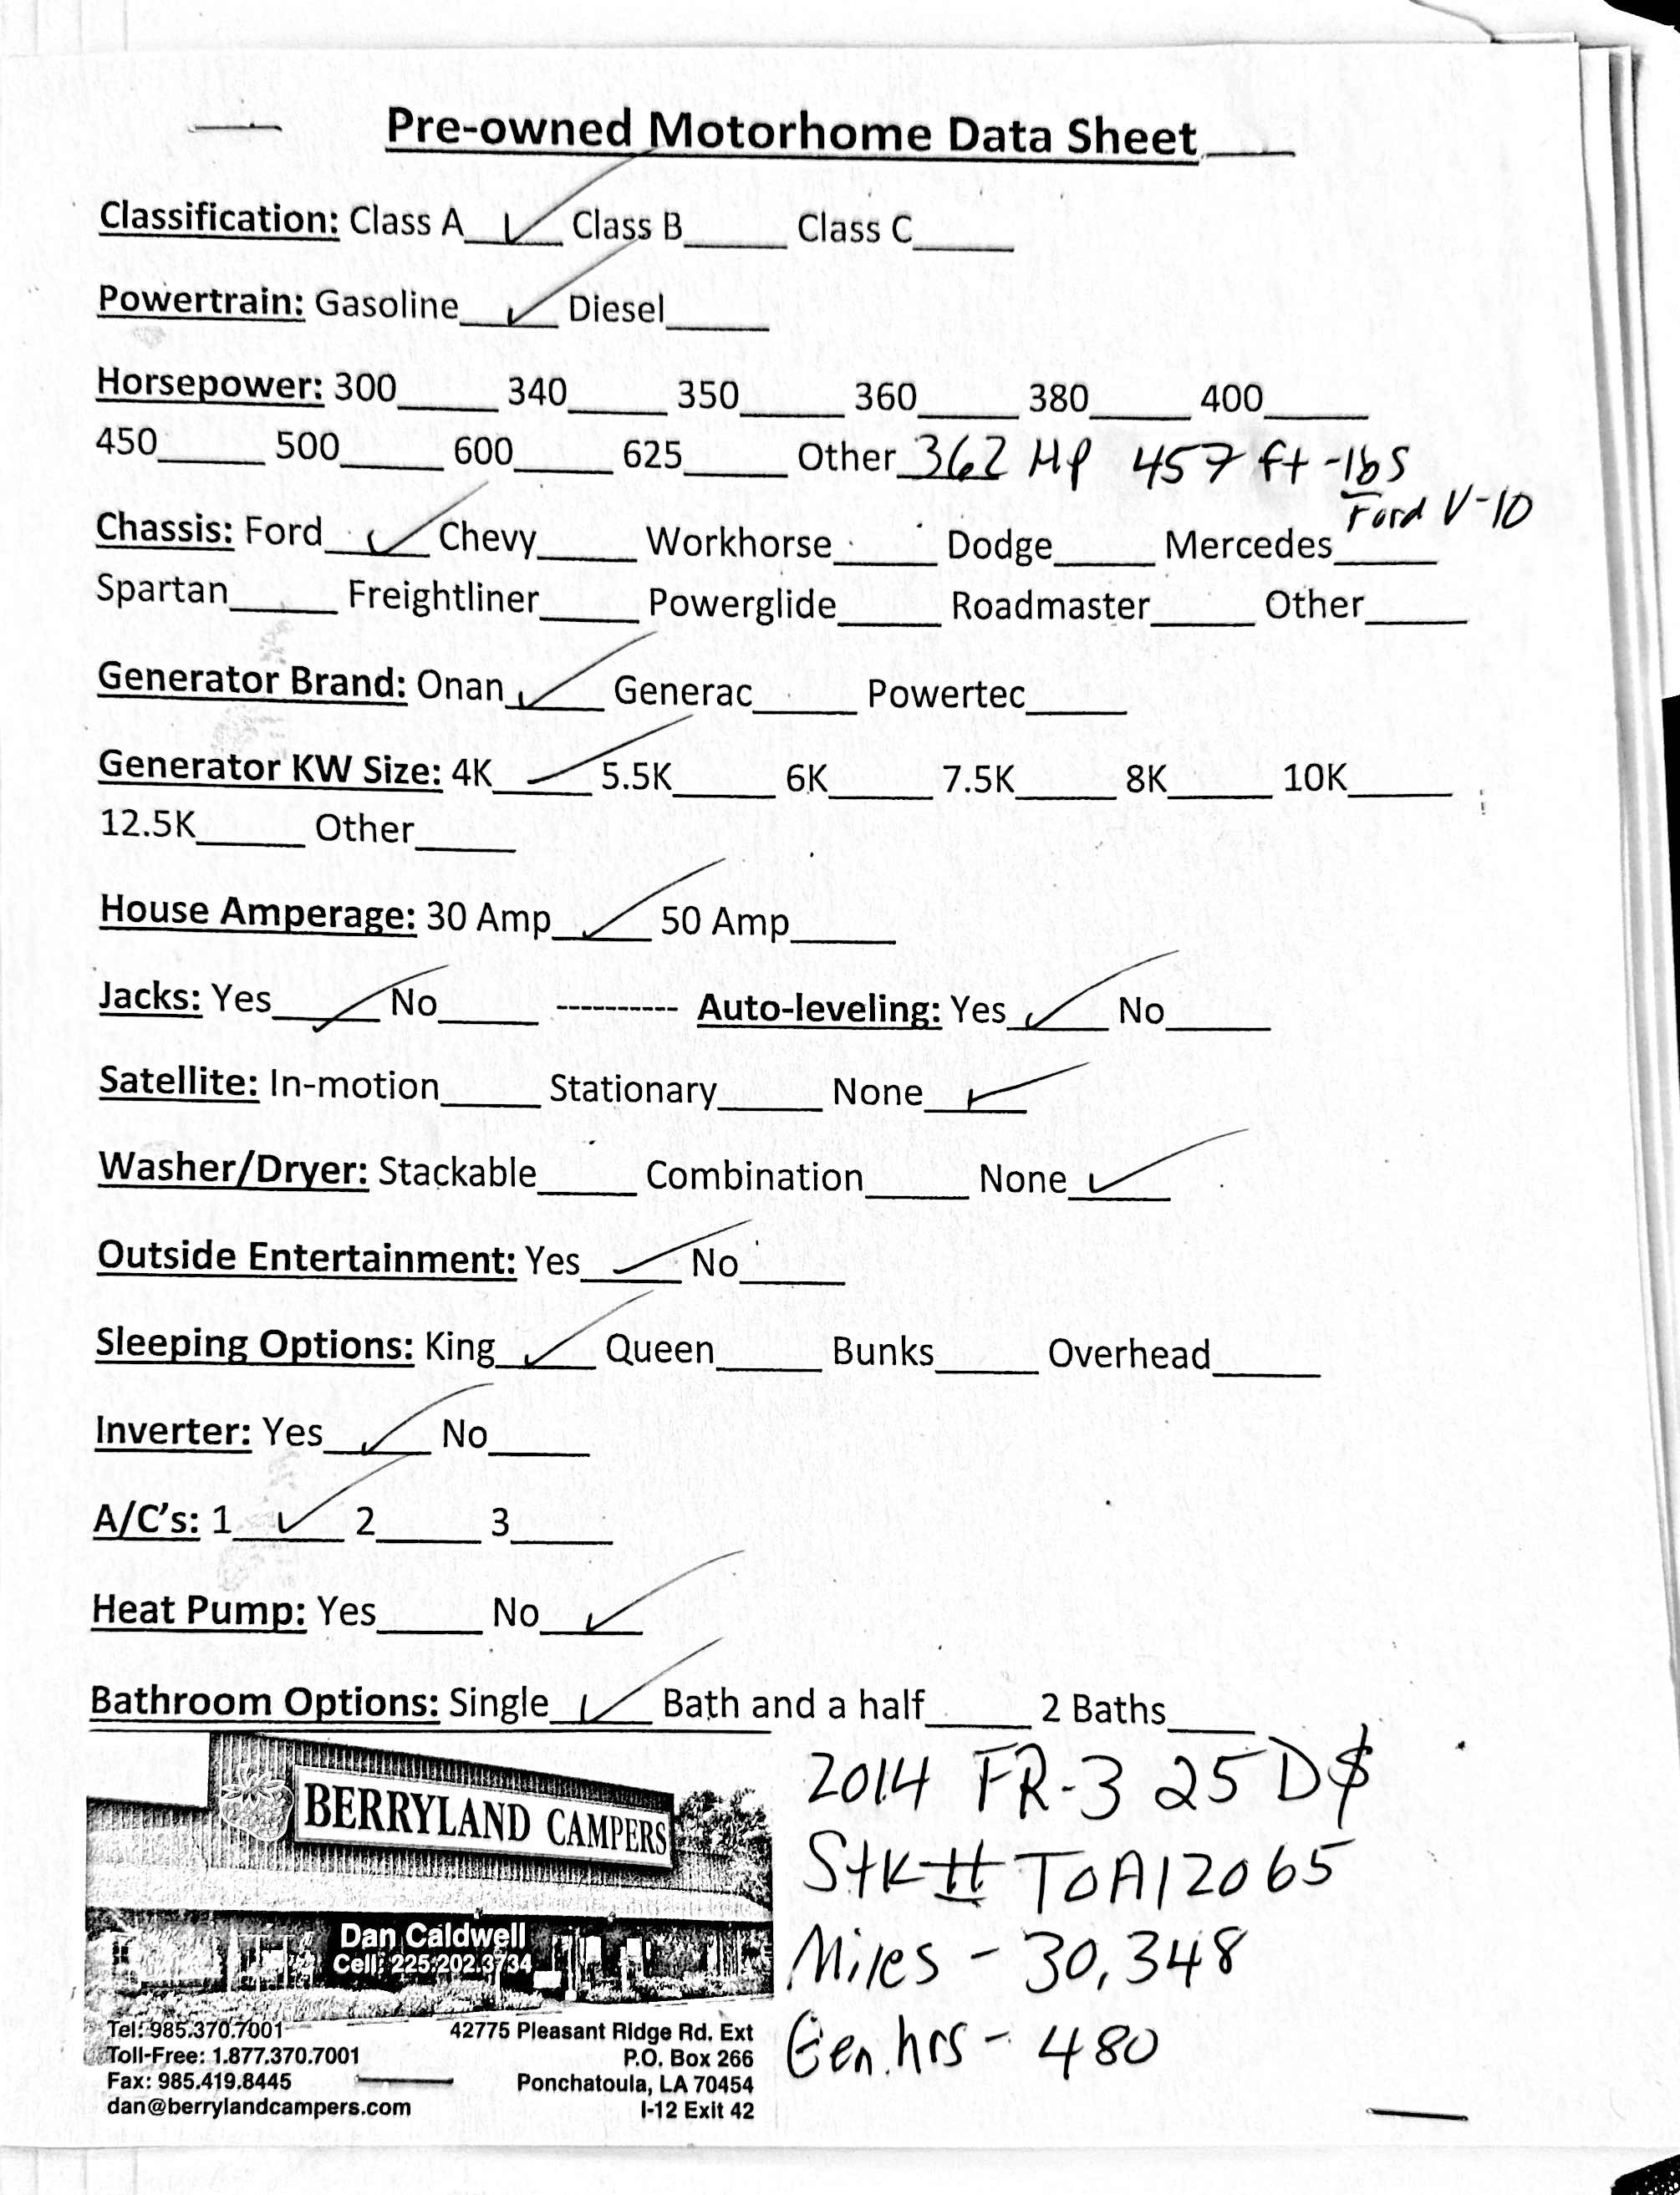 Pre-owned Motorhome Data Sheet
Classification: Class A ✓ Class B_____ Class C_____
Powertrain: Gasoline ✓ Diesel_____
Horsepower: 300_____ 340_____ 350_____ 360_____ 380_____ 400_____
450_____ 500_____ 600_____ 625_____ Other 362 Hp 457 ft-lbs
Ford V-10
Chassis: Ford ✓ Chevy_____ Workhorse_____ Dodge_____ Mercedes_____
Spartan_____ Freightliner_____ Powerglide_____ Roadmaster_____ Other_____
Generator Brand: Onan ✓ Generac_____ Powertec_____
Generator KW Size: 4K ✓ 5.5K_____ 6K_____ 7.5K_____ 8K_____ 10K_____
12.5K_____ Other_____
House Amperage: 30 Amp ✓ 50 Amp_____
Jacks: Yes ✓ No_____ ---------- Auto-leveling: Yes ✓ No_____
Satellite: In-motion_____ Stationary_____ None ✓
Washer/Dryer: Stackable_____ Combination_____ None ✓
Outside Entertainment: Yes ✓ No_____
Sleeping Options: King ✓ Queen_____ Bunks_____ Overhead_____
Inverter: Yes ✓ No_____
A/C's: 1 ✓ 2_____ 3_____
Heat Pump: Yes_____ No ✓
Bathroom Options: Single ✓ Bath and a half_____ 2 Baths_____
BERRYLAND CAMPERS
Dan Caldwell
Cell: 225.202.3734
Tel: 985.370.7001
Toll-Free: 1.877.370.7001
Fax: 985.419.8445
dan@berrylandcampers.com
42775 Pleasant Ridge Rd. Ext
P.O. Box 266
Ponchatoula, LA 70454
I-12 Exit 42
2014 FR-3 25D$
Stk# TOA12065
Miles - 30,348
Gen. hrs - 480